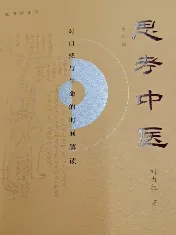 思考中医
对自然与生命的时间解读
刘力红 著